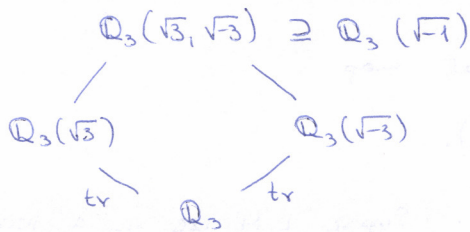 ℚ₃(√3, √-3) ⊇ ℚ₃(√-1)
ℚ₃(√3) ℚ₃(√-3)
tr tr
ℚ₃